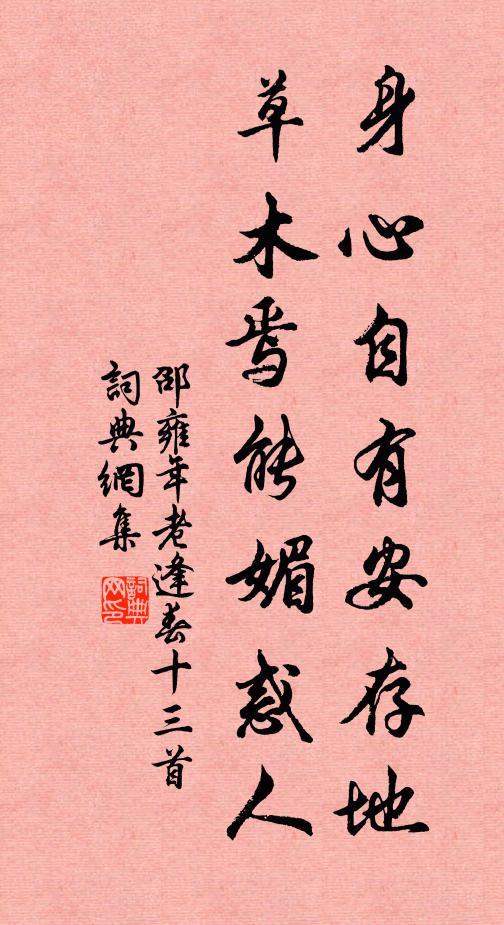 身心自有安存地
草木焉能媚惑人
邵雍年老逢春十三首
詞典網集
詞典
网印